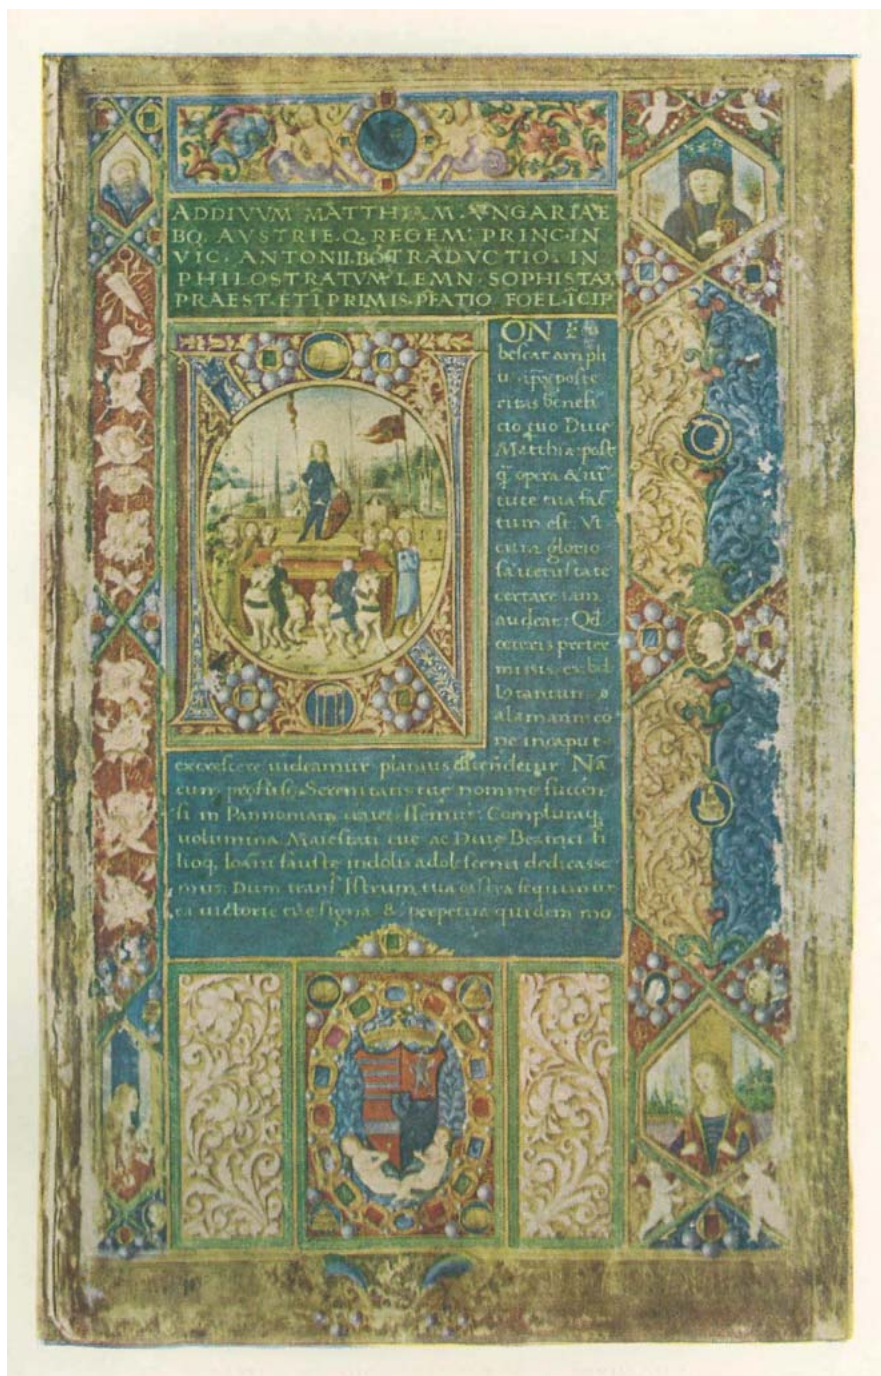 AD DIVVM MATTHIAM VNGARIAE
BQ. AVSTRIE. Q. REGEM. PRINC. IN
VIC. ANTONII. B. TRADVCTIO. IN
PHILOSTRATVM LEMN. SOPHISTA
PRAEST. ET I PRIMIS. PFATIO FOEL. ICIP
ON
bescat ampli
poste
ritas benefi
cio tuo Diue
Matthia post
q opera & uir
tute tua fac
tum est. Vt
cum glorio
sa uetustate
certare iam
audeat: Qd
ceteris preter
missis. ex bib
tantum
ne in caput
excrescere uideamur planius ostendetur. Na
cum Serenitatis tue nomine
si in Pannoniam Compluraq
uolumina Maiestati tue ac Diue Beatrici fi
lioq. Ioani fauste indolis adolescenti dedicasse
mus. Dum transf Istrum tua castra sequimur
et uictorie tue signa & perpetua quidem mo